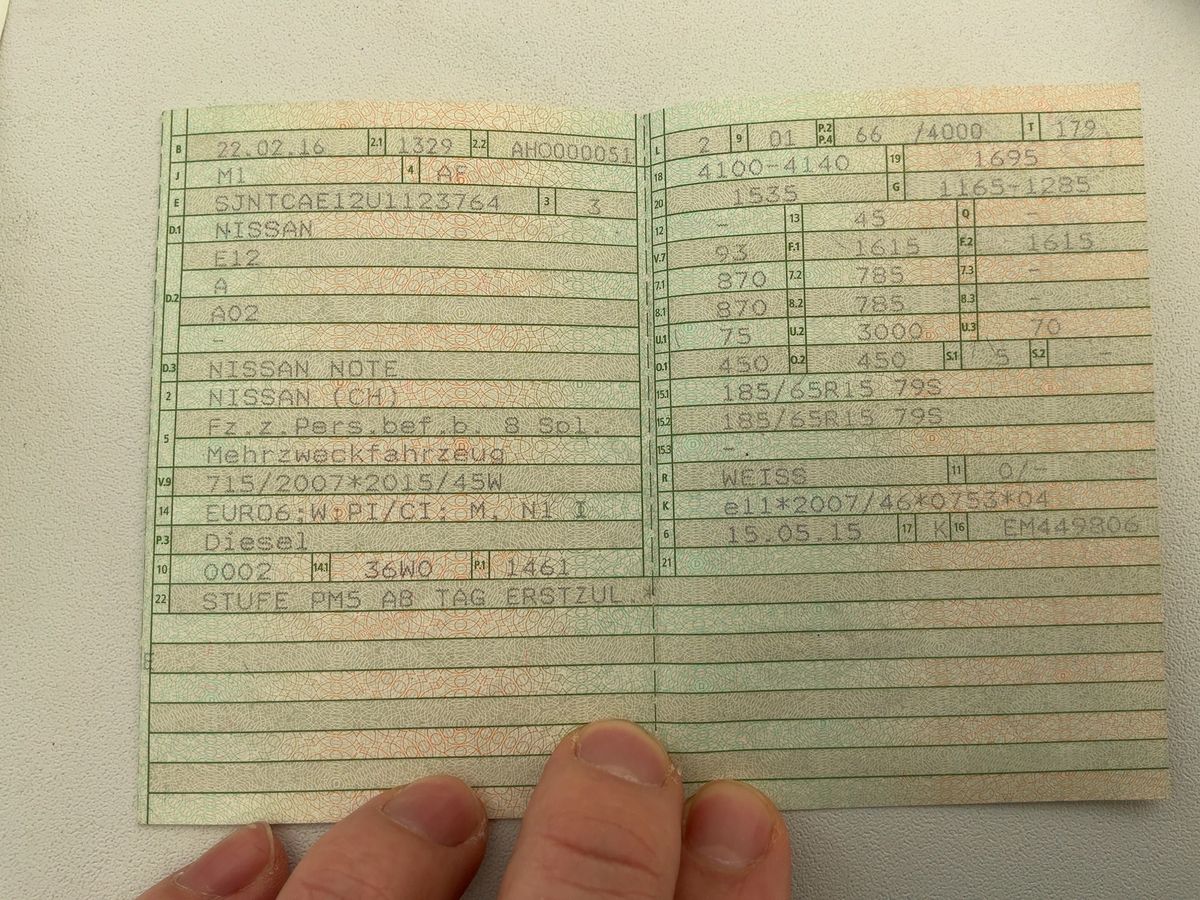 B 22.02.16 2.1 1329 2.2 AH0000051
J M1 4 AF
E SJNTCAE12U1123764 3 3
D.1 NISSAN
E12
A
D.2 A02
-
D.3 NISSAN NOTE
2 NISSAN (CH)
5 Fz.z.Pers.bef.b. 8 Spl.
Mehrzweckfahrzeug
V.9 715/2007*2015/45W
14 EURO6;W;PI/CI; M, N1 I
P.3 Diesel
10 0002 14.1 36W0 P.1 1461
22 STUFE PM5 AB TAG ERSTZUL.*
E
L 2 9 01 P.2 P.4 66 /4000 T 179
18 4100-4140 19 1695
20 1535 G 1165-1285
12 - 13 45 Q -
V.7 93 F.1 1615 F.2 1615
7.1 870 7.2 785 7.3 -
8.1 870 8.2 785 8.3 -
U.1 75 U.2 3000 U.3 70
O.1 450 O.2 450 S.1 5 S.2 -
15.1 185/65R15 79S
15.2 185/65R15 79S
15.3 -
R WEISS 11 0/-
K e11*2007/46*0753*04
6 15.05.15 17 K 16 EM449806
21